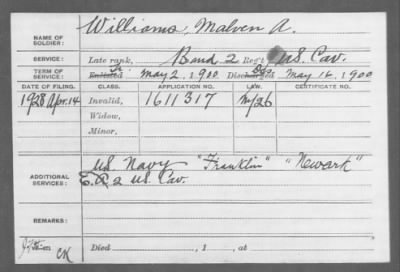 NAME OF SOLDIER: Williams, Malven A.
SERVICE: Late rank, Band 2 Reg't U.S. Cav.
TERM OF SERVICE: Enlisted Tr. May 2, 1900 Discharged May 16, 1900
DATE OF FILING. CLASS. APPLICATION NO. LAW. CERTIFICATE NO.
1928 Apr. 14 Invalid, 1611317 My/26
Widow,
Minor,
ADDITIONAL SERVICES: U.S. Navy "Franklin" "Newark"
E, 2 U.S. Cav.
REMARKS:
CK Died , 1 , at